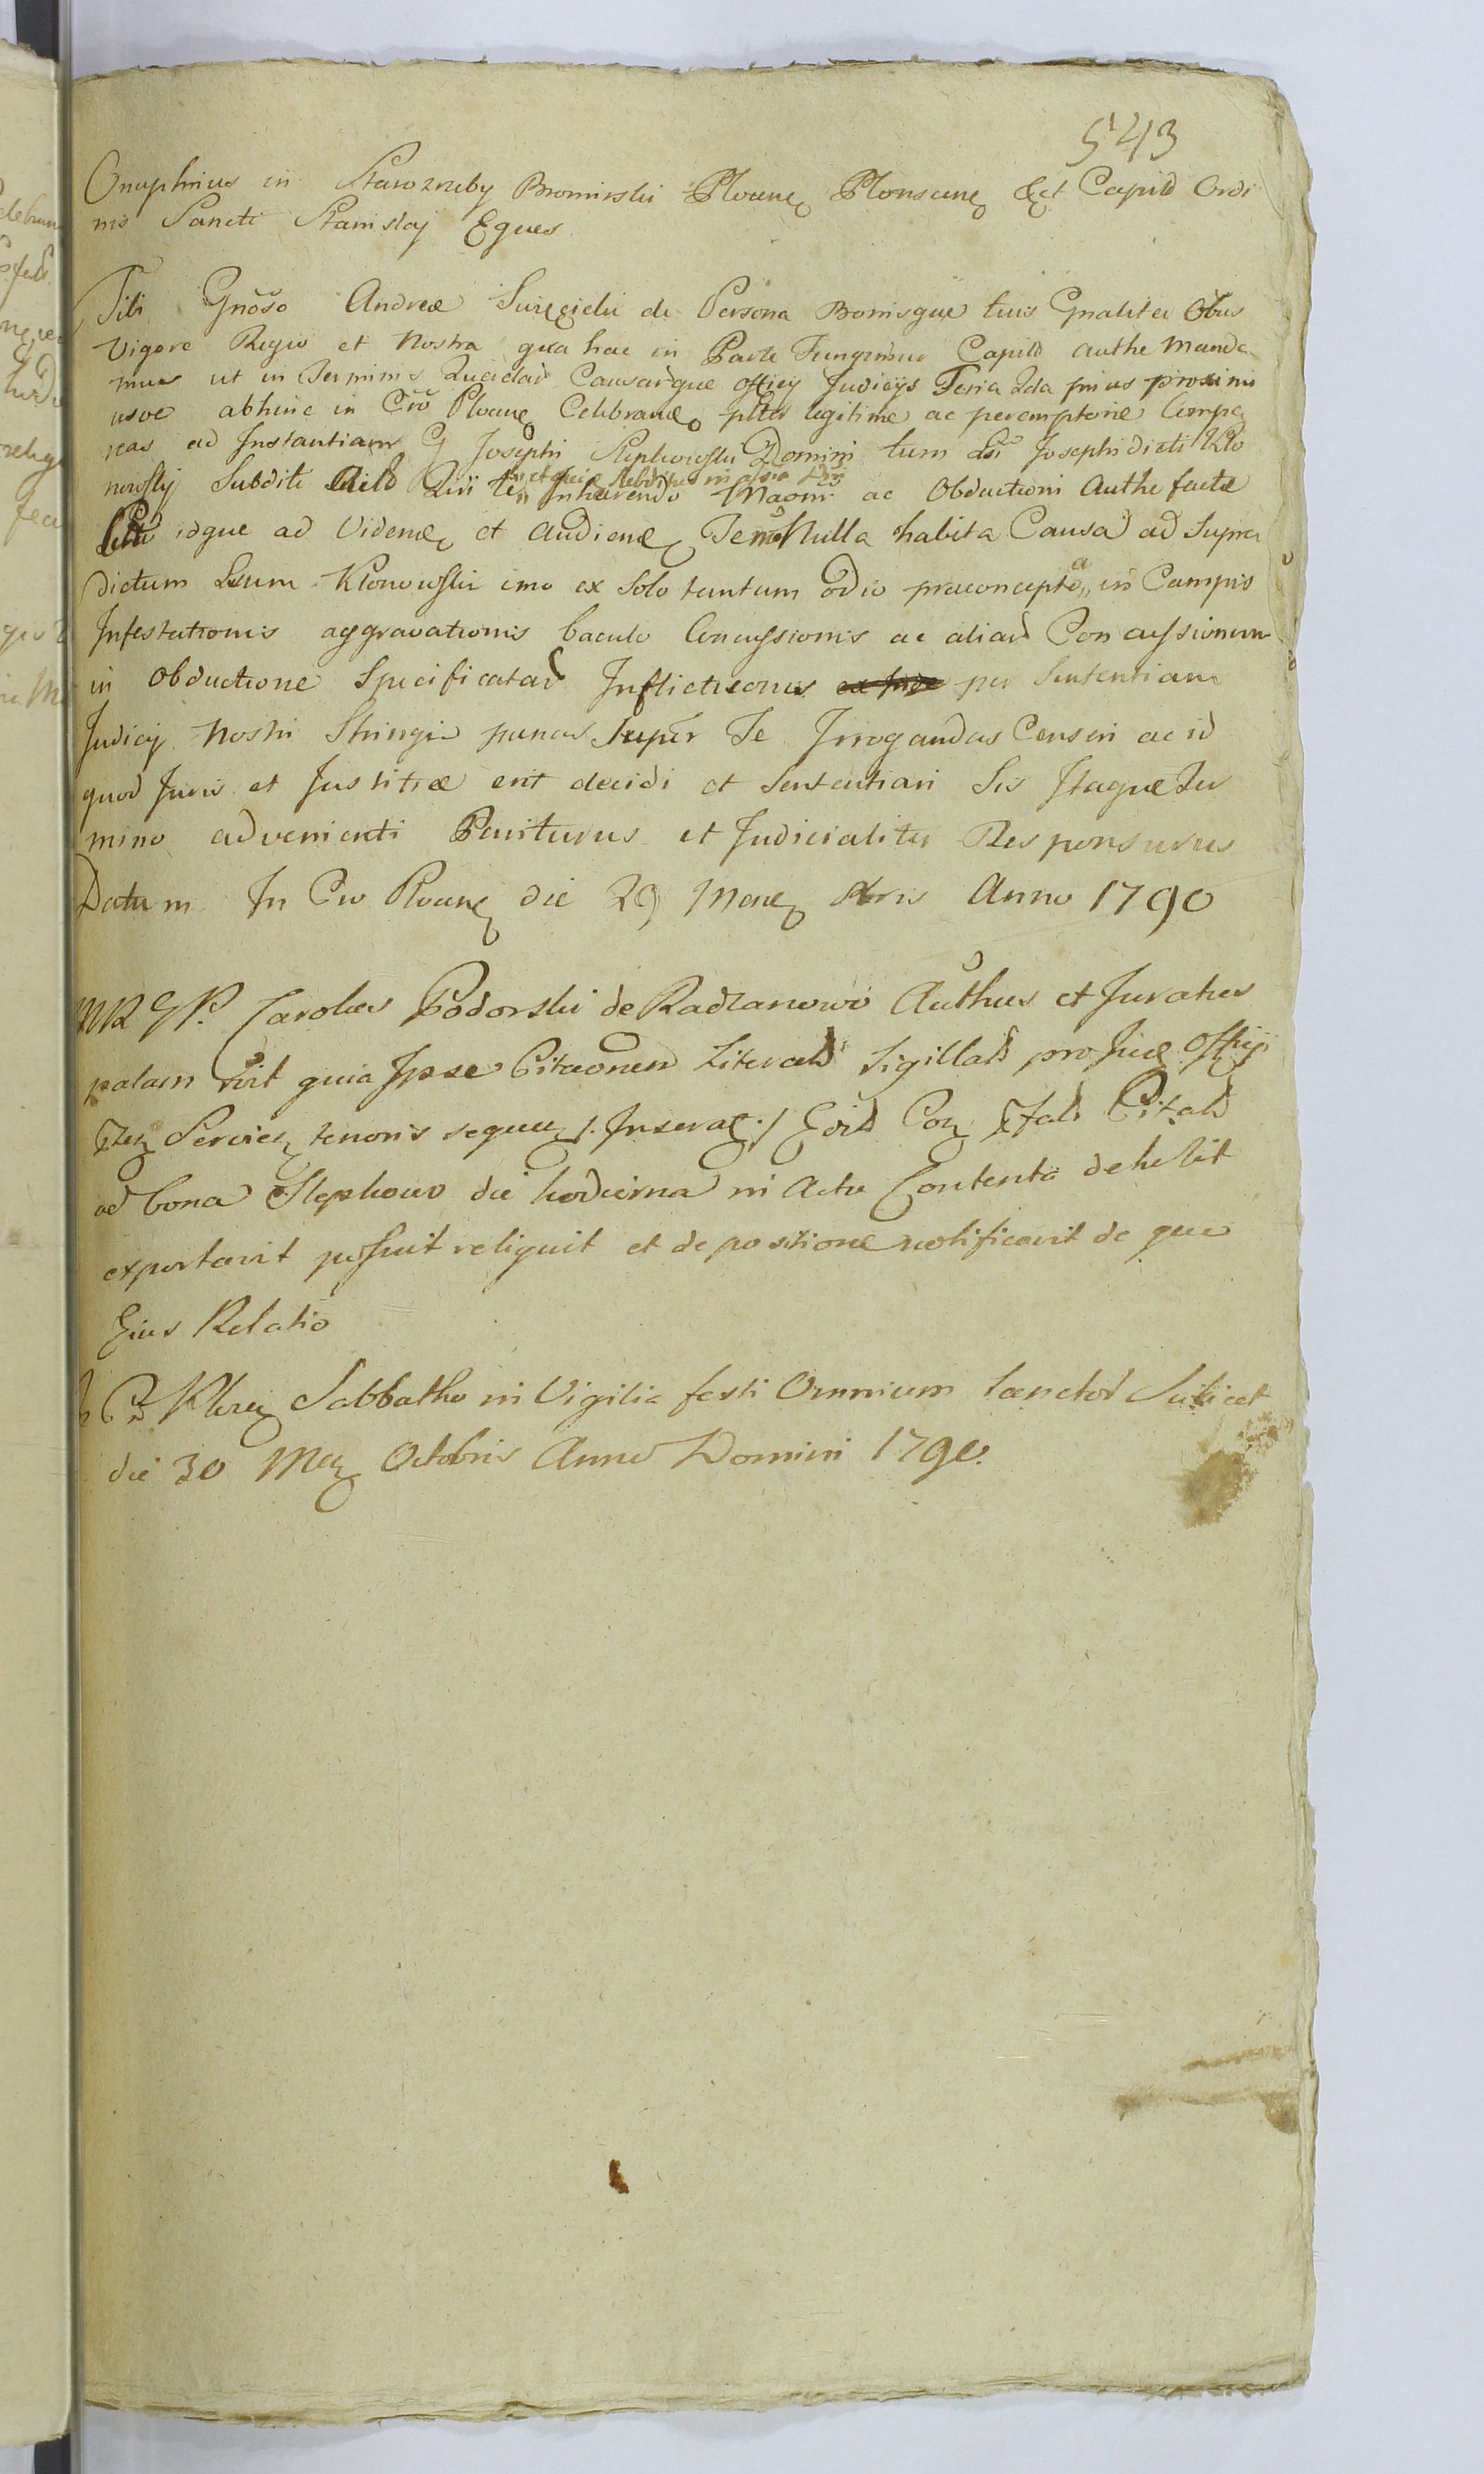 543
Onuphrius in Starozreby Bromirski Plocen Plonscen &et Capid Ordi
nis Sancti Stanislaj Eques
Tibi Gnoso Andreæ de Persona Bonisque tuis Gnaliter Obus
Vigore Regio et Nostra qua hac in Parte Fungimur Capild Authe Manda
mus ut in Terminis Causarque officy Judicys Feria 2da prius proximi
usve abhinc in Crō Plocen Celebran pltes legitime ac peremptorie Compa
reas ad Instantiam G Josephi Stepkowski Domini tum Josephi dicti Klo
nowsky Subditi Qui Te Inhærendo ac Obductioni Authe factæ
idque ad Videnđ et Audienđ Te Nulla habita Causa ad Supra
dictum Klonowski imo ex Solo tantum odio præconcepto in Campis
Infestationis aggravationis baculo Concussionis ac aliard Concussionum
in Obductione Specificatard Inflictionis per Sententiam
Judicij Nostri Stringi pænas Super Te Irrogandas Censeri ac id
quod Juris et Justitiæ erit decidi et Sententiari Sis Itaque Ter
mino advenienti Pariturus et Judicialiter Responsurus
Datum In Cro Plocen die 29 Mens Xbris Anno 1790
MR GP. Carolus Podorski de Radzanowo Authus et Juratus
palam rcit quia Ipse Citaonem Literald Sigillatd pro Officij
Servien tenoris sequen /. Inserat ./ Citatd
ad bona Stepkowo die hodierna in Actu Contenta detulit
exportavit posuit reliquit et de positione notificavit de quo
Ejus Relatio
Sabbatho in Vigilia festi Omnium Sanctord Scilicet
die 30 Men Octobris Anno Domini 1790.